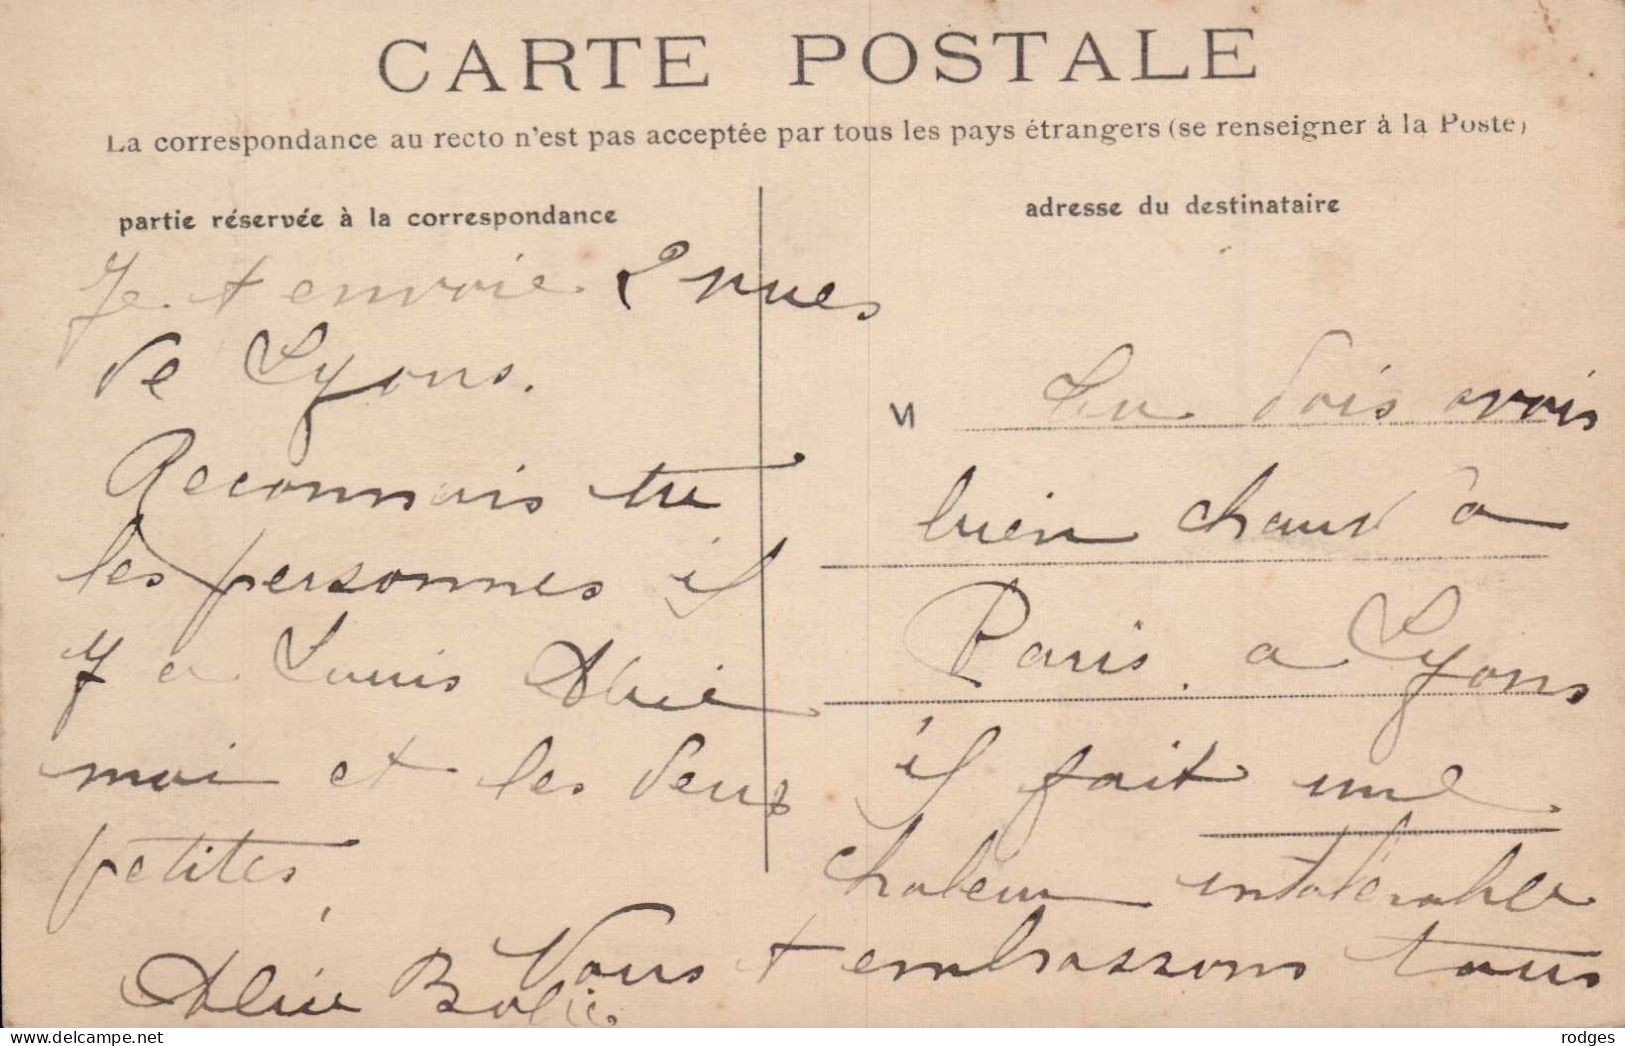 CARTE POSTALE
La correspondance au recto n'est pas acceptée par tous les pays étrangers (se renseigner à la Poste)
partie réservée à la correspondance
Je t envoie 2 vues
de Lyons.
Reconnais tu
les personnes il
y a Louis
moi et les deux
petites
adresse du destinataire
M
Tu dois avois
bien chaud à
Paris. a Lyons
il fait une
chaleur intolérable
Nous t embrassons tous
delcampe.net
rodges